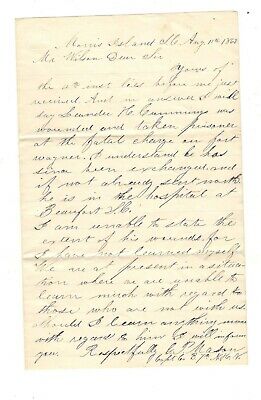 Morris Island S.C. Aug 11th 1863
Mr Wilson Dear Sir
Yours of
the 4th inst lies before me just
received And in answer I will
say Leander H. Cummings was
wounded and taken prisoner
at the fatal charge on fort
wagner. I understand he has
since been exchanged and
if not already sent north
he is in the hospital at
Beaufort S.C.
I am unable to state the
extent of his wounds for
I have not learned myself
We are at present in a situa-
tion where we are unable to
learn much with regard to
those who are not with us
Should I learn anything more
with regard to him I will inform
you. Respectfully Mason
Capt Co. E 7th N.H.